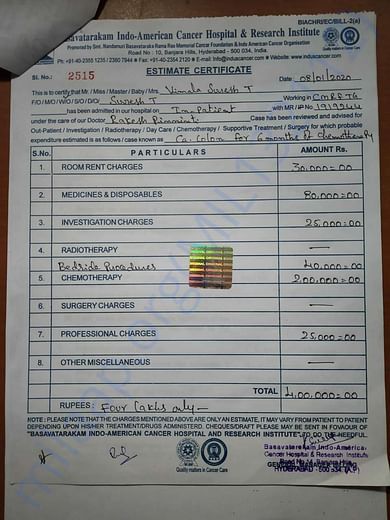 BIACHRI/EC/BILL-2(a)
Basavatarakam Indo-American Cancer Hospital & Research Institute
Promoted by Smt. Nandamuri Basavataraka Rama Rao Memorial Cancer Foundation & Indo American Cancer Organisation
Road No : 10, Banjara Hills, Hyderabad - 500 034, India.
Ph: +91-40-2355 1235 / 2360 7944 Fax: +91-40-2354 2120 E-mail: Info@induscancer.com Website: www.induscancer.com
ESTIMATE CERTIFICATE
Sl. No.: 2515
Date : 08/01/2020
This is to certify that Mr. / Miss / Master / Baby / Mrs. Vimala Suresh T
F/O / M/O / W/O / S/O / D/O/ Suresh T Working in CMRPTG
has been admitted in our hospital on In-Patient with MR / IP No 1919244
under the care of our Doctor Rajesh Case has been reviewed and advised for
Out-Patient / Investigation / Radiotherapy / Day Care / Chemotherapy / Supportive Treatment / Surgery for which probable
expenditure estimated is as follows / case known as Ca. Colon for 6 months of chemotherapy
S.No. PARTICULARS AMOUNT Rs.
1. ROOM RENT CHARGES 30,000=00
2. MEDICINES & DISPOSABLES 80,000=00
3. INVESTIGATION CHARGES 25,000=00
4. RADIOTHERAPY —
Bedside Procedures 40,000=00
5. CHEMOTHERAPY 2,00,000=00
6. SURGERY CHARGES —
7. PROFESSIONAL CHARGES 25,000=00
8. OTHER MISCELLANEOUS —
TOTAL 4,00,000=00
RUPEES : Four Lakhs only —
NOTE : PLEASE NOTE THAT THE CHARGES MENTIONED ABOVE ARE ONLY AN ESTIMATE, IT MAY VARY FROM PATIENT TO PATIENT
DEPENDING UPON HIS/HER TREATMENT/DRUGS ADMINISTERD. CHEQUES/DRAFT PLEASE MAY BE SENT IN FOVAOUR OF
"BASAVATARAKAM INDO-AMERICAN CANCER HOSPITAL AND RESEARCH INSTITUTE" TO DO THE NEEDFUL.
Quality matters in Cancer Care
Basavatarakam Indo-America
Cancer Hospital & Research Institute
Road No. 10, Banjara Hills
GENERAL MANAGER BILLING
HYDERABAD - 500 034 (A.P)